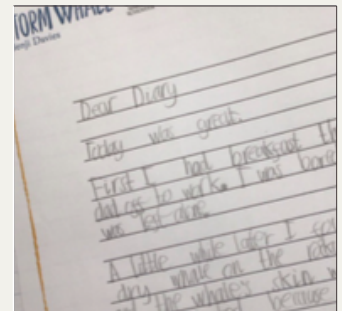 TORM WHALE
Benji Davies
Dear Diary
Today was great.
First I had breakfast
dad off to work. I was
was left alone
A little while later I
dry whale on the
the whale's skin
because